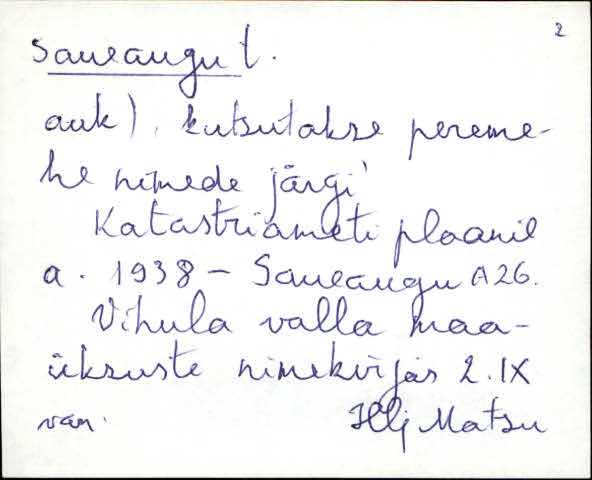 2
Saueaugu t.
auk), kutsutakse pereme-
he nimede järgi
Katastriameti plaanil
a. 1938 – Saueaugu A26.
Vihula valla maa-
üksuste nimekirjas 2.IX
Matsu